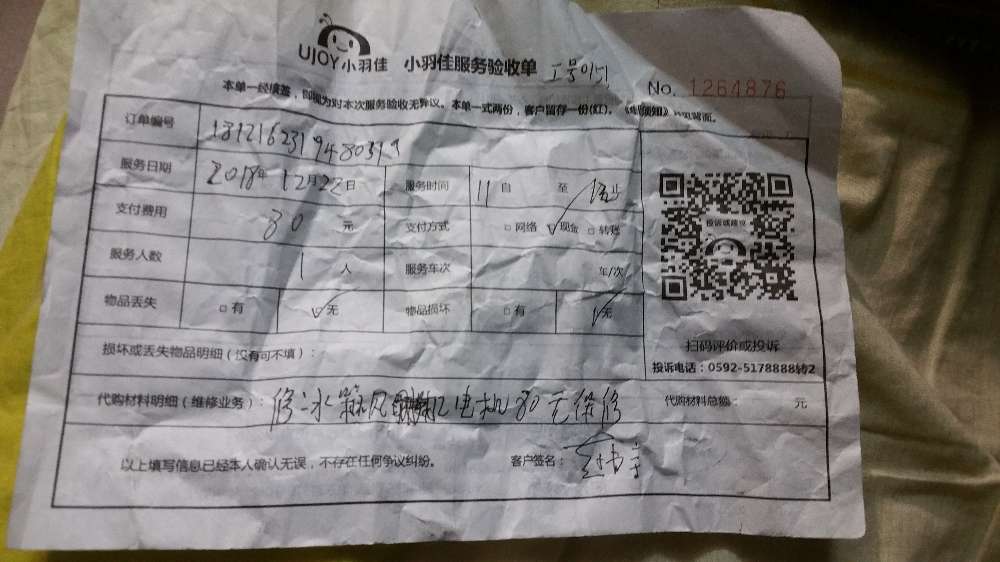 UJOY小羽佳 小羽佳服务验收单
No. 1264876
本单一经填签，即视为对本次服务验收无异议。本单一式两份，客户留存一份(红)。
订单编号
服务日期 2018年 12月22日 服务时间 11 自 至
支付费用 80 元 支付方式 □网络 ☑现金 □转账
服务人数 1 人 服务车次 车/次
物品丢失 □有 ☑无 物品损坏 □有 ☑无
投诉或建议
扫码评价或投诉
投诉电话：0592-5178888转2
损坏或丢失物品明细（没有可不填）：
代购材料明细（维修业务）： 修冰箱风 电机80元 修 代购材料总额： 元
以上填写信息已经本人确认无误，不存在任何争议纠纷。 客户签名：